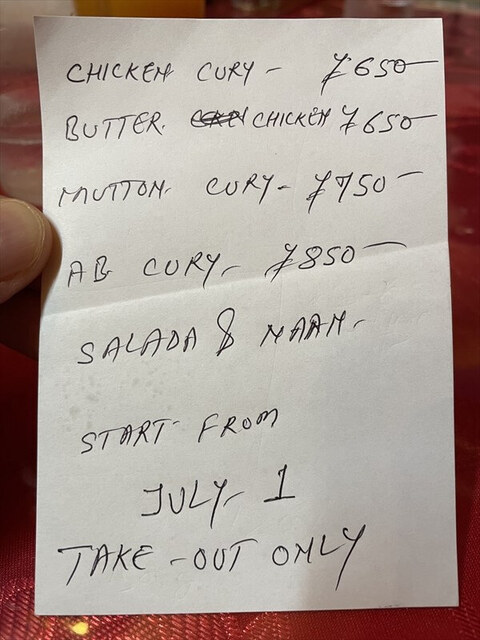 CHICKEN CURY - ¥650-
BUTTER CHICKEN ¥650-
MUTTON CURY - ¥750-
AB CURY - ¥850-
SALADA & NAAN -
START FROM
JULY - 1
TAKE - OUT ONLY